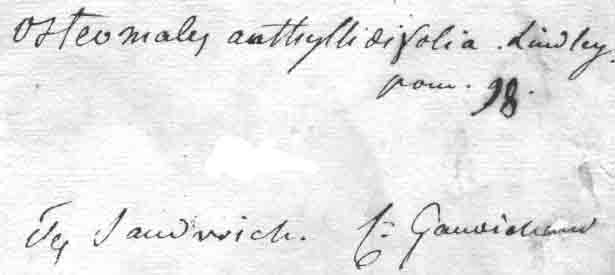 Osteomeles anthyllidifolia. Lindley.
pom. 98.
Is Sandwich. C. Gaudichaud